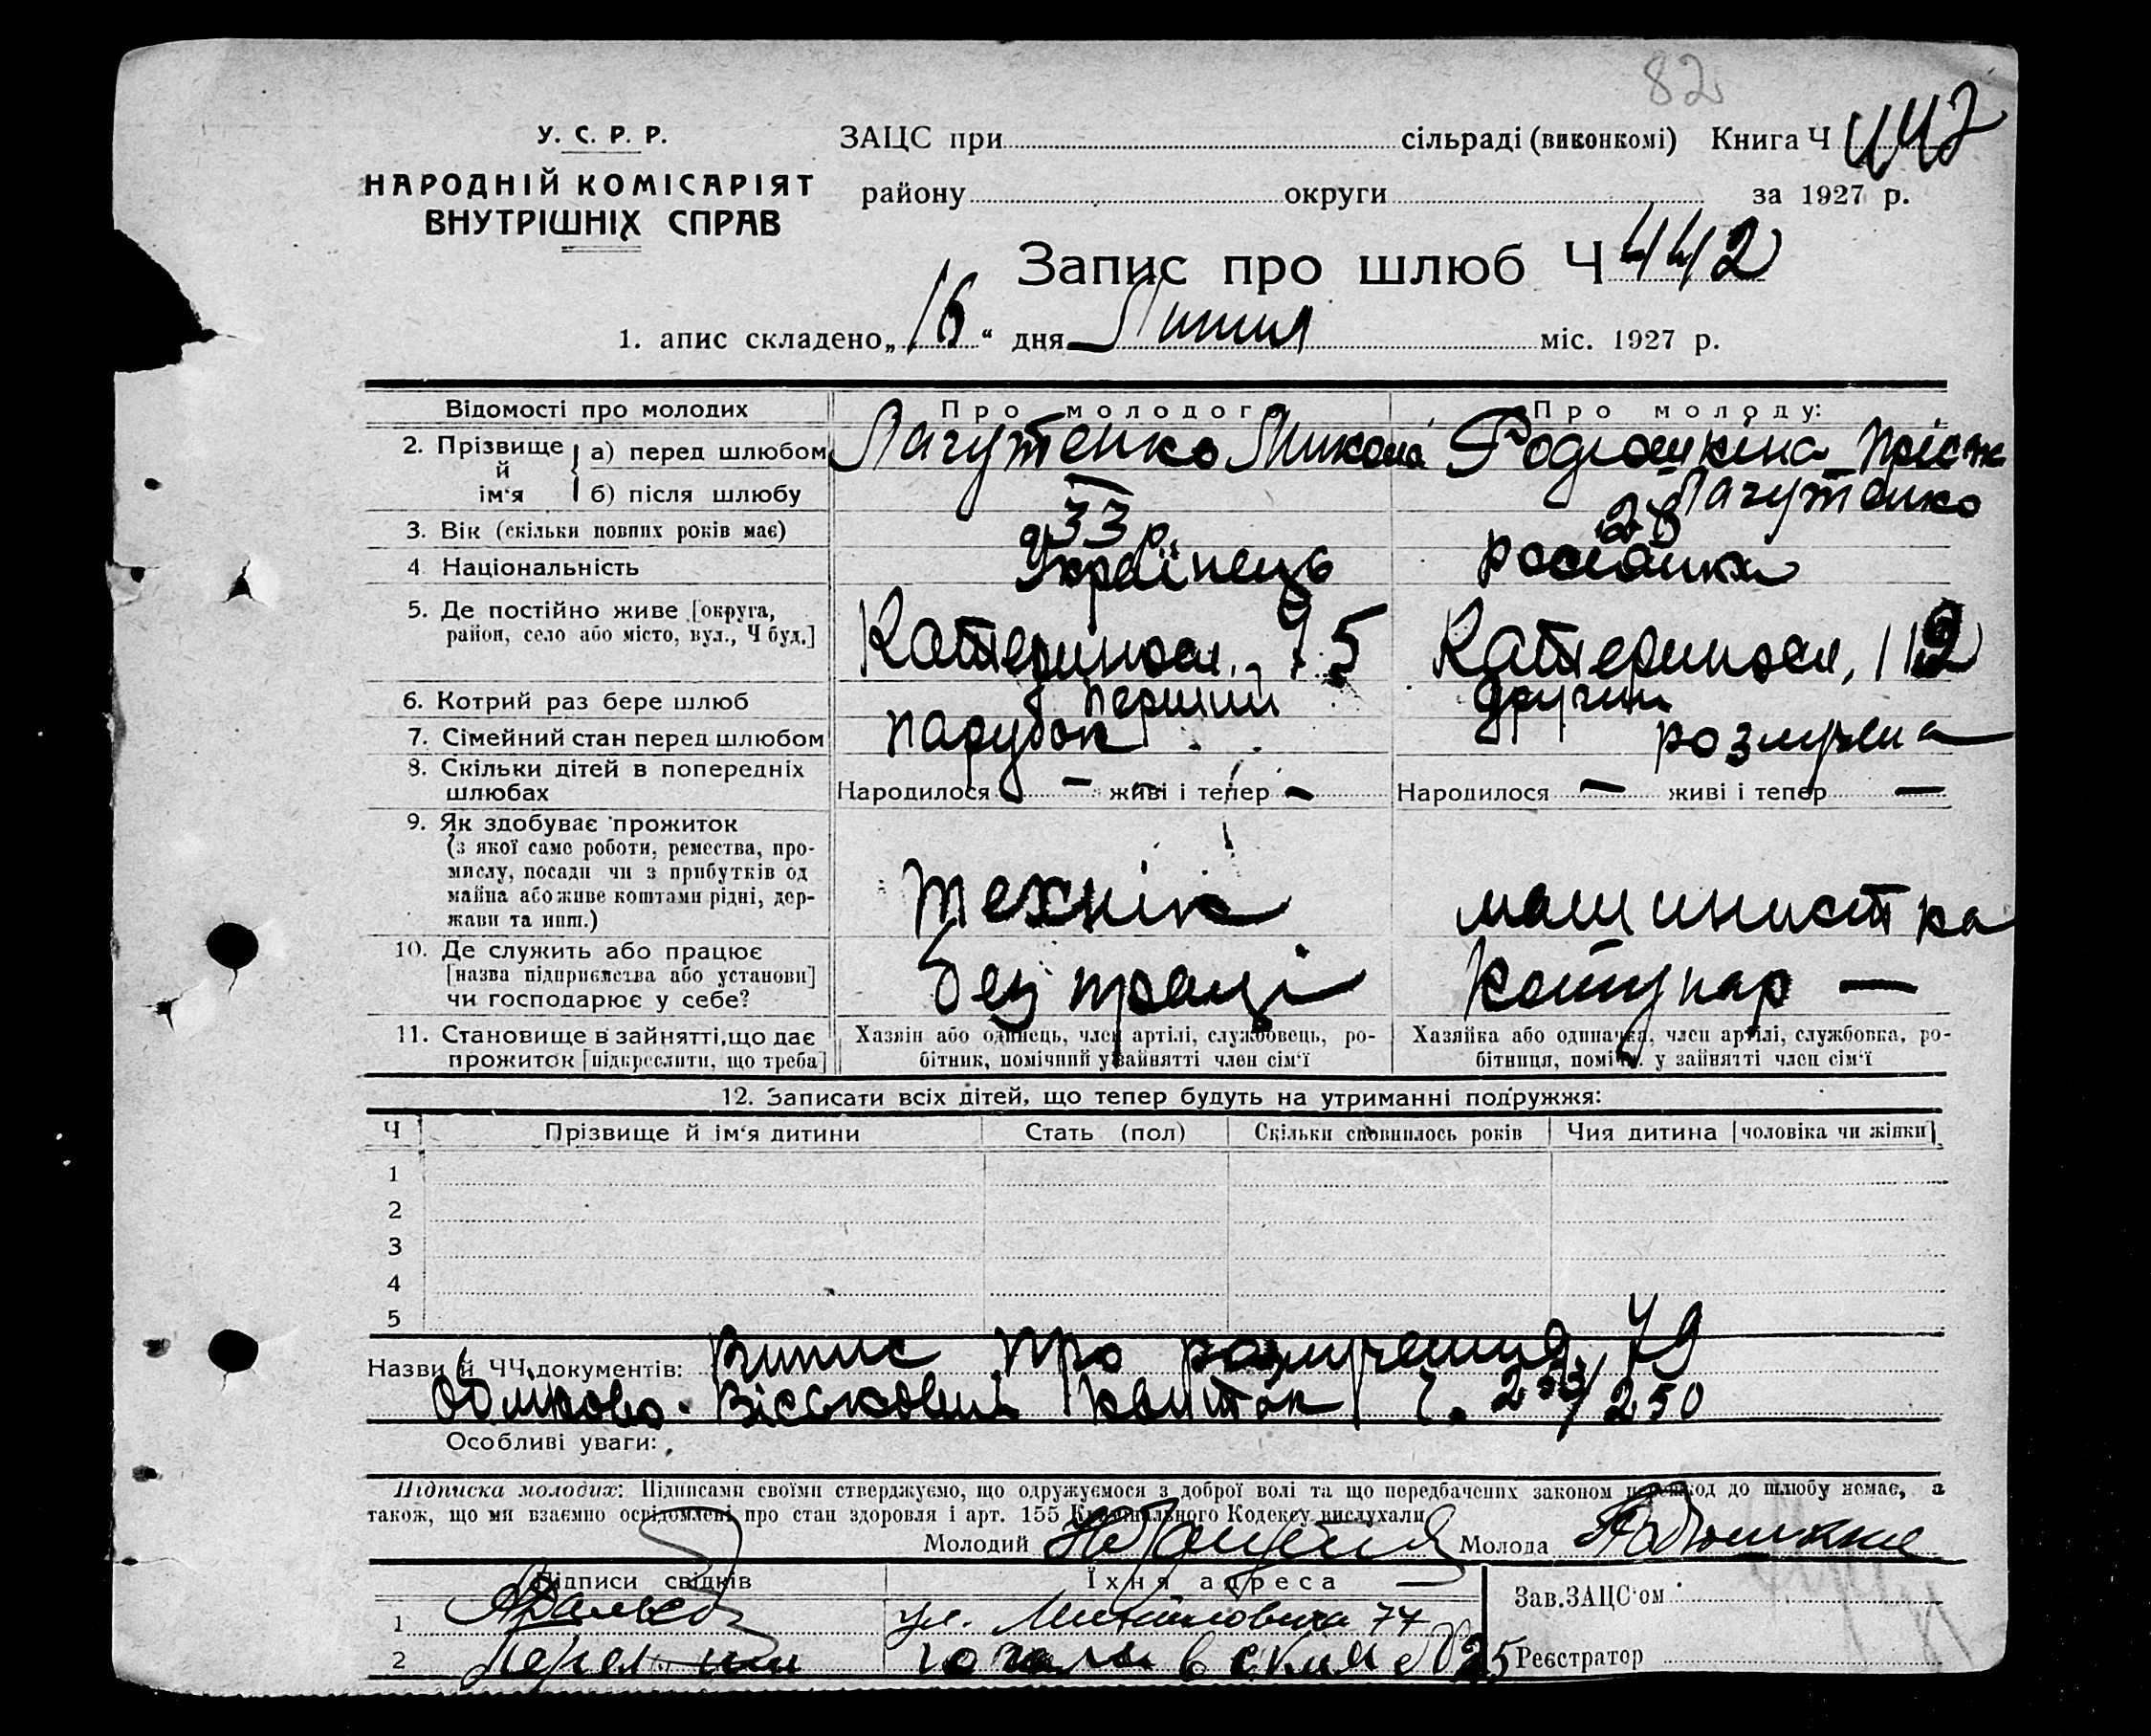 82
У. С. Р. Р.
НАРОДНІЙ КОМІСАРІЯТ
ВНУТРІШНІХ СПРАВ
ЗАЦС при сільраді (виконкомі) Книга Ч 442
району округи за 1927 р.
Запис про шлюб Ч 442
1. апис складено „16“ дня Липня міс. 1927 р.
Відомості про молодих
Про молодого
Про молоду:
2. Прізвище й ім'я
а) перед шлюбом
Лагутенко Микола
Родіошкіна
б) після шлюбу
—
Лагутенко
3. Вік (скільки повних років має)
33 р.
28
4 Національність
Українець
росіянка
5. Де постійно живе [округа,
район, село або місто, вул., Ч буд.]
Катериносл., 95
Катериносл, 112
6. Котрий раз бере шлюб
перший
другий
7. Сімейний стан перед шлюбом
парубок
розлучена
8. Скільки дітей в попередніх
шлюбах
Народилося — живі і тепер —
Народилося — живі і тепер —
9. Як здобуває прожиток
(з якої саме роботи, ремества, про-
мислу, посади чи з прибутків од
майна або живе коштами рідні, дер-
жави та инш.)
технік
машинистка
10. Де служить або працює
[назва підприємства або установи]
чи господарює у себе?
без праці
—
11. Становище в зайнятті, що дає
прожиток [підкреслити, що треба]
Хазяїн або одинець, член артілі, службовець, ро-
бітник, помічний у зайнятті член сім'ї
Хазяйка або одиначка, член артілі, службовка, ро-
бітниця, помічн. у зайнятті член сім'ї
12. Записати всіх дітей, що тепер будуть на утриманні подружжя:
Ч
Прізвище й ім'я дитини
Стать (пол)
Скільки сповнилось років
Чия дитина [чоловіка чи жінки]
1
2
3
4
5
Назви й ЧЧ документів: Випис про розлучення 49
Обліково. Військовий квиток ч. 253/250
Особливі уваги:
Підписка молодих: Підписами своїми стверджуємо, що одружуємося з доброї волі та що передбачених законом перешкод до шлюбу немає, а
також, що ми взаємно освідомлені про стан здоровля і арт. 155 Кримінального Кодексу вислухали
Молодий
Молода
Підписи свідків
Їхня адреса
Зав. ЗАЦС'ом
1
ул. 77
2
25
Реєстратор